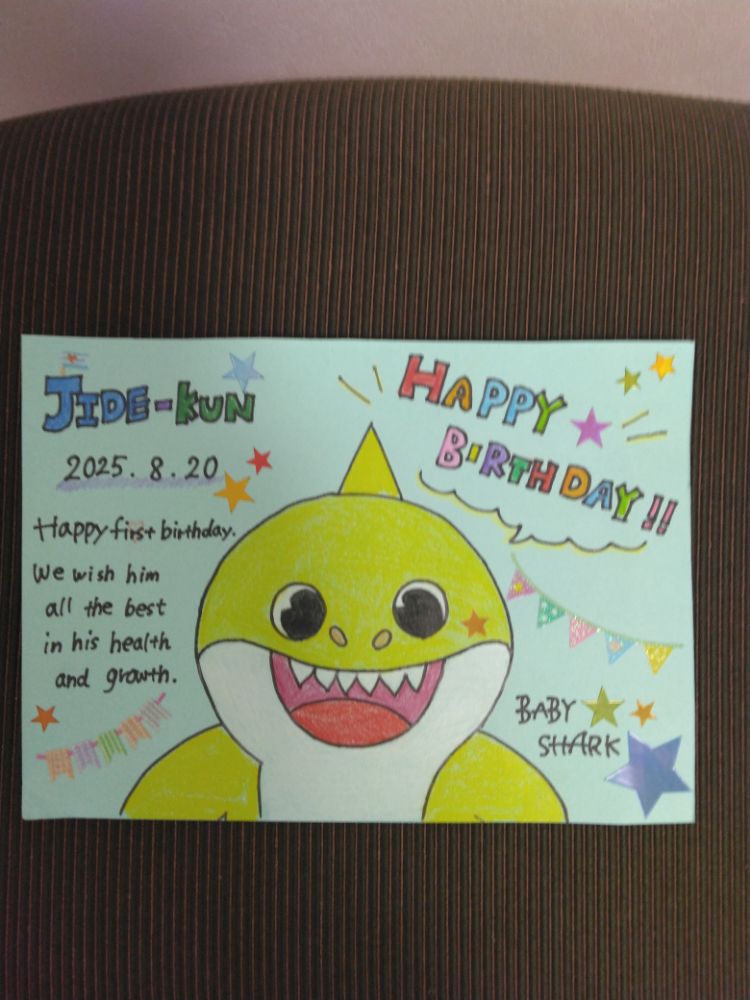 JIDE-KUN
2025.8.20
Happy first birthday.
We wish him
all the best
in his health
and growth.
HAPPY
BIRTHDAY!!
BABY
SHARK